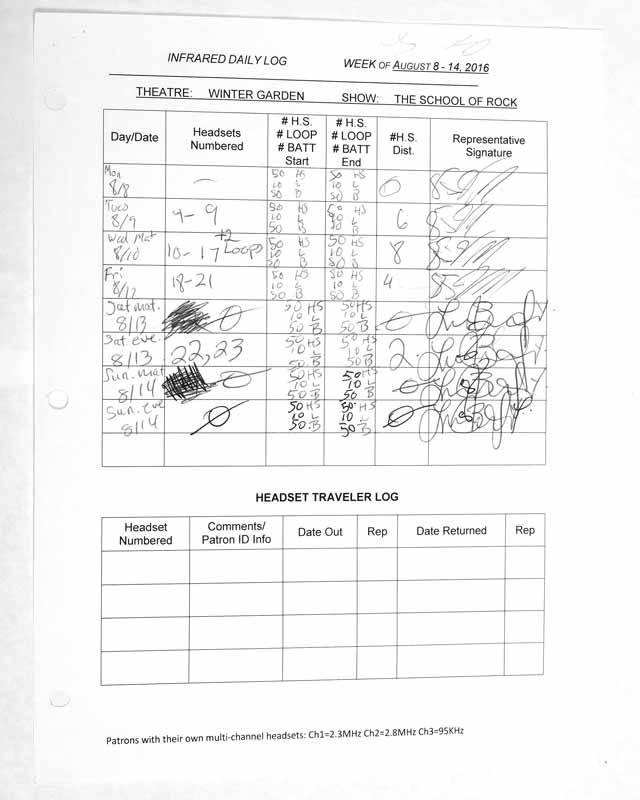 INFRARED DAILY LOG WEEK OF AUGUST 8 - 14, 2016
THEATRE: WINTER GARDEN SHOW: THE SCHOOL OF ROCK
Day/Date Headsets Numbered # H.S. # LOOP # BATT Start # H.S. # LOOP # BATT End #H.S. Dist. Representative Signature
Mon 8/8 50 HS 10 L 50 B 50 HS 10 L 50 B 0
Tues 8/9 4-9 50 HS 10 L 50 B 50 HS 10 L 50 B 6
Wed Mat 8/10 10-17 +2 Loops 50 HS 10 L 50 B 50 HS 10 L 50 B 8
Fri 8/12 18-21 50 HS 10 L 50 B 50 HS 10 L 50 B 4
Sat mat. 8/13 0 50 HS 10 L 50 B 50 HS 10 L 50 B 0
Sat. eve. 8/13 22, 23 50 HS 10 L 50 B 50 HS 10 L 50 B 2
Sun. mat 8/14 0 50 HS 10 L 50 B 50 HS 10 L 50 B 0
Sun. eve 8/14 0 50 HS 10 L 50 B 50 HS 10 L 50 B 0
HEADSET TRAVELER LOG
Headset Numbered Comments/ Patron ID Info Date Out Rep Date Returned Rep
Patrons with their own multi-channel headsets: Ch1=2.3MHz Ch2=2.8MHz Ch3=95KHz